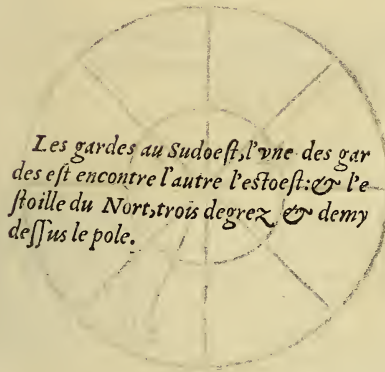 Les gardes au Sudoeſt,l'vne des gar
des eſt encontre l'autre l'eſtoeſt:& l'e
ſtoille du Nort,trois degrez & demy
deſſus le pole.